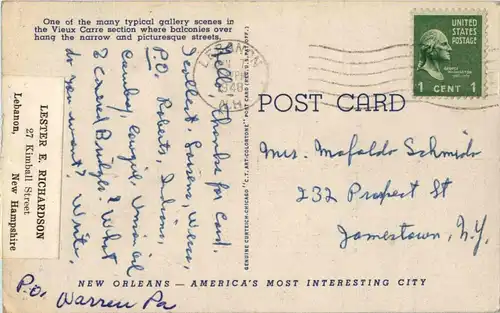 One of the many typical gallery scenes in
the Vieux Carre section where balconies over
hang the narrow and picturesque streets.
LESTER E. RICHARDSON
27 Kimball Street
Lebanon, New Hampshire
Hello, Thanks for Card.
Excellent.
P.O. Roberts, Indiana,
Union oil
& Covered Bridges? What
do you want? Write.
P.O.
Warren Pa
NEW ORLEANS — AMERICA'S MOST INTERESTING CITY
GENUINE CURTEICH-CHICAGO "C.T. ART-COLORTONE" POST CARD (REG. U.S. PAT. OFF.)
LEBANON
1948
N.H.
UNITED
STATES
POSTAGE
1 CENT 1
POST CARD
Mrs. Mafalda Schmidt
232 Prospect St
Jamestown, N.Y.